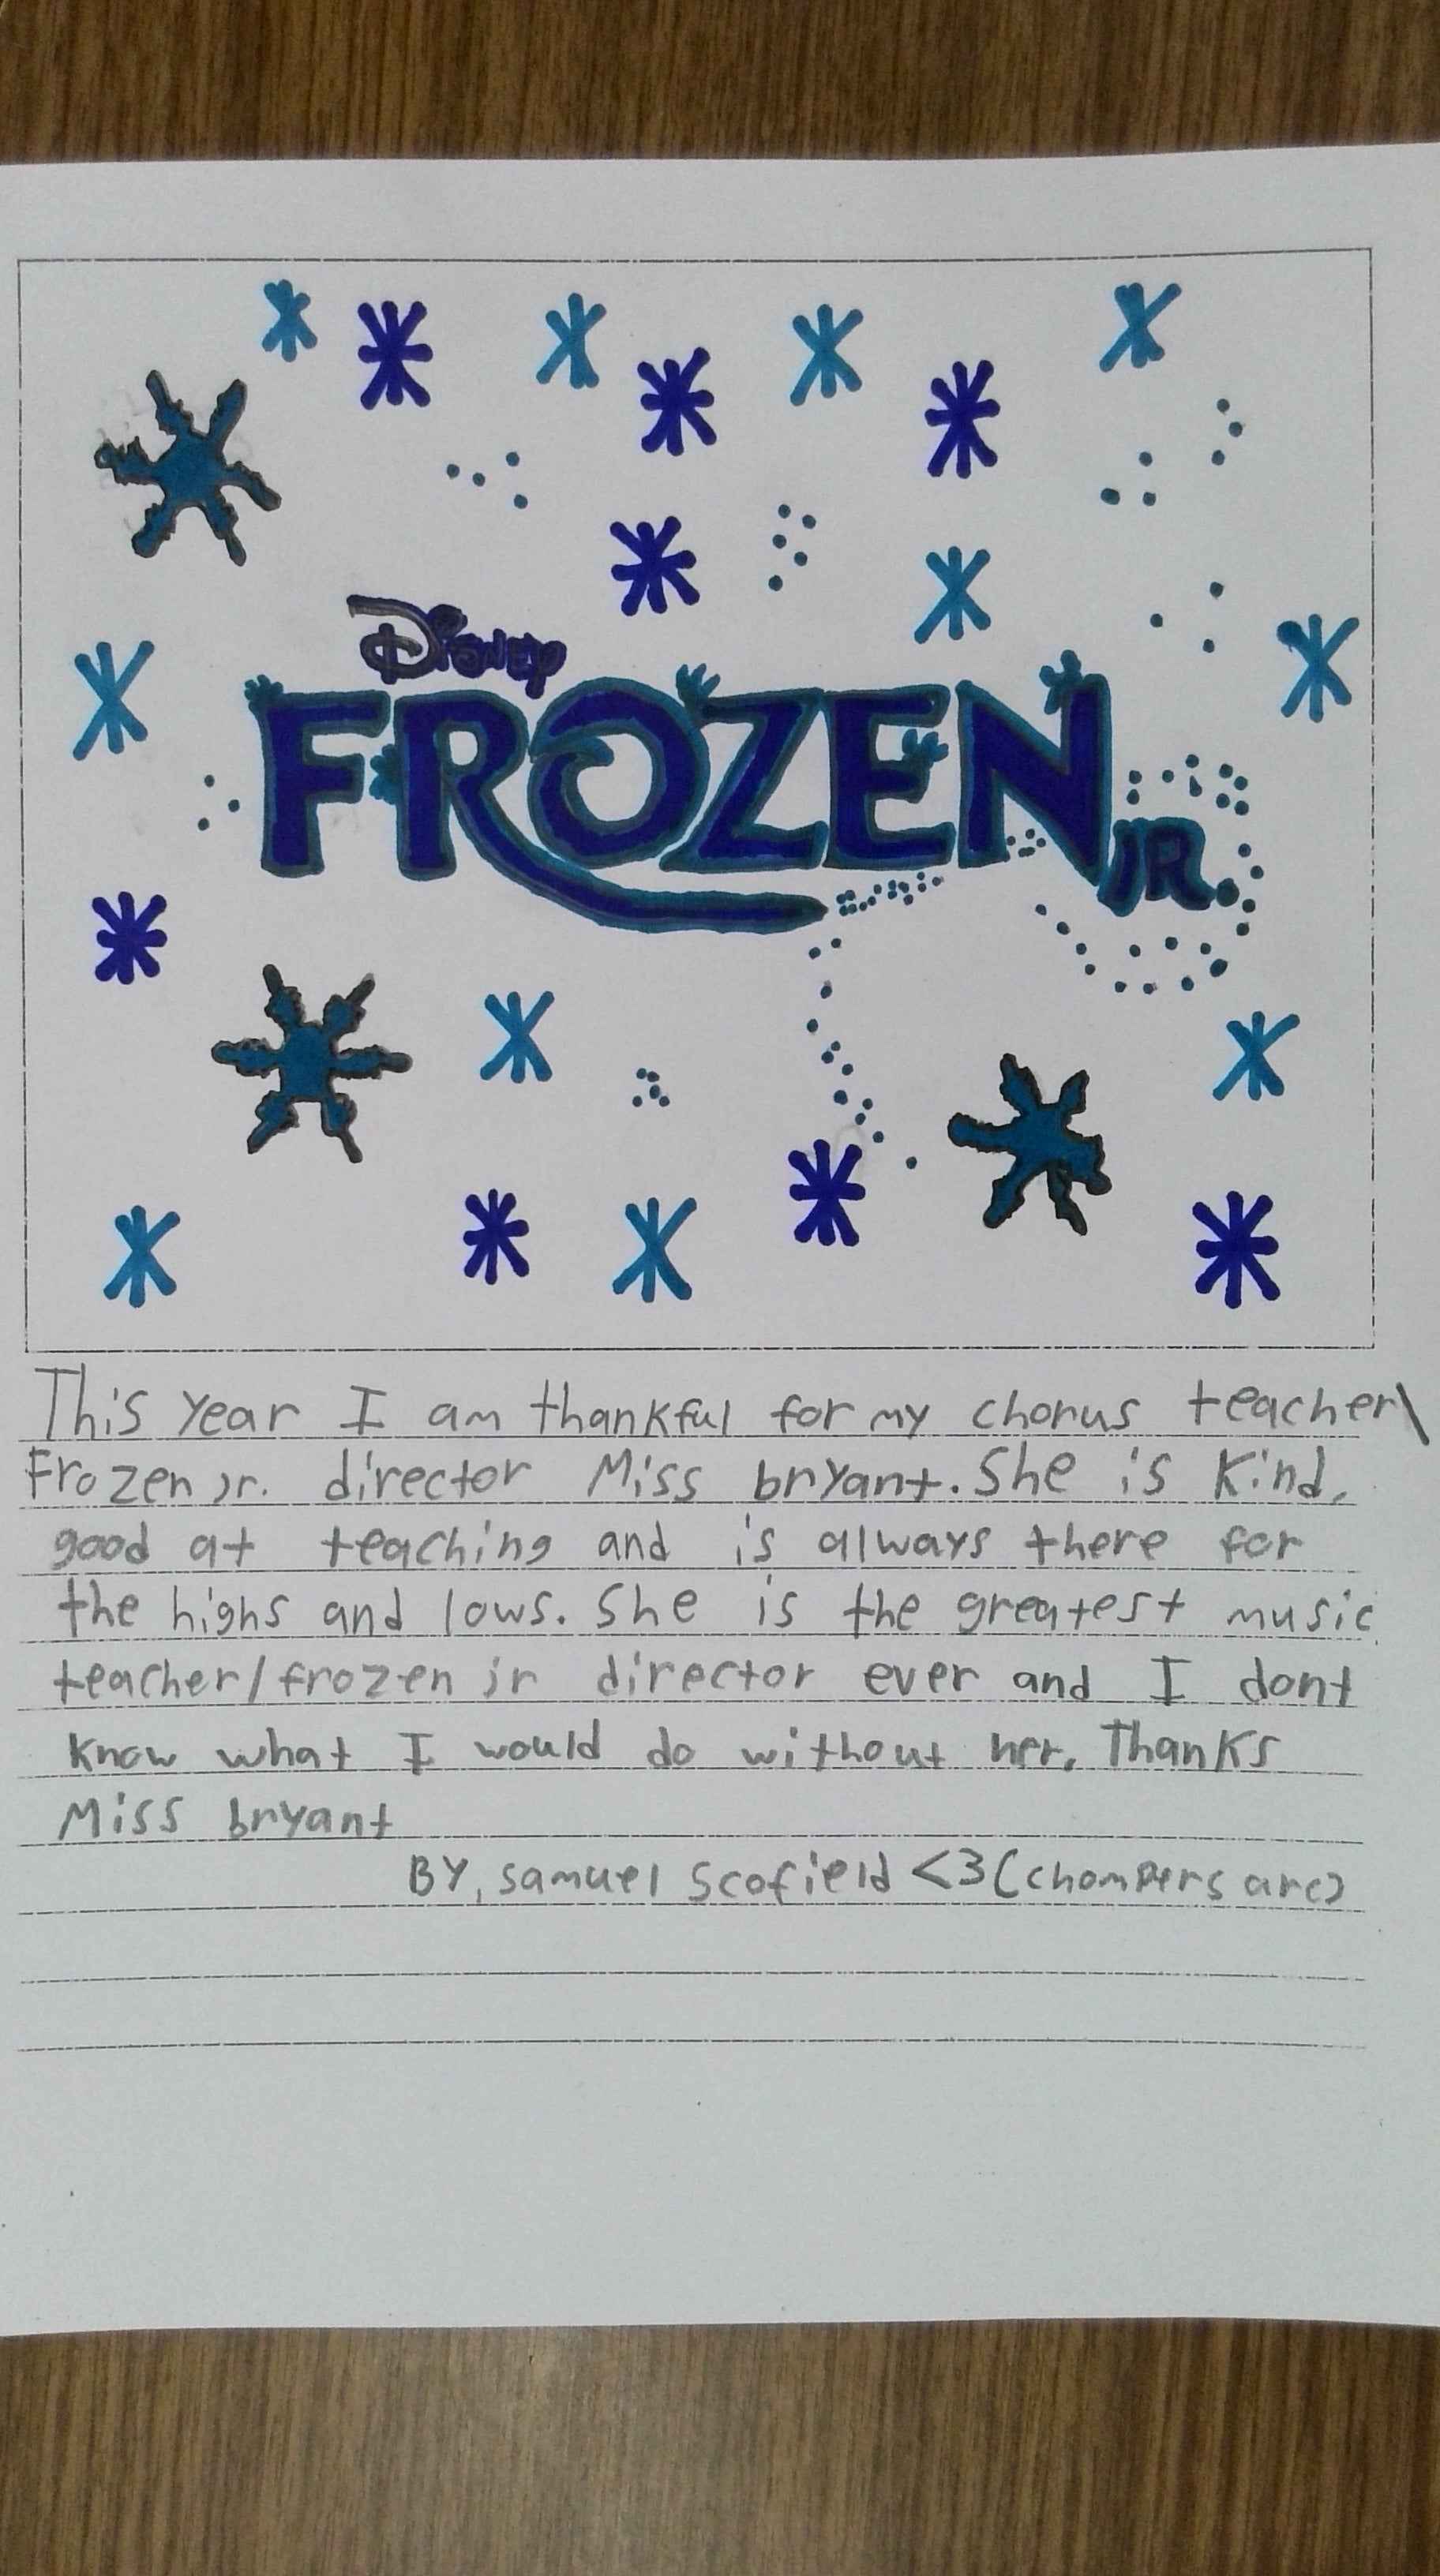 DISNEY
FROZEN
JR.
This year I am thankful for my chorus teacher\
Frozen jr. director Miss bryant. She is kind,
good at teaching and is always there for
the highs and lows. She is the greatest music
teacher/frozen jr director ever and I dont
know what I would do without her. Thanks
Miss bryant
BY, Samuel Scofield <3 (chompers arc)